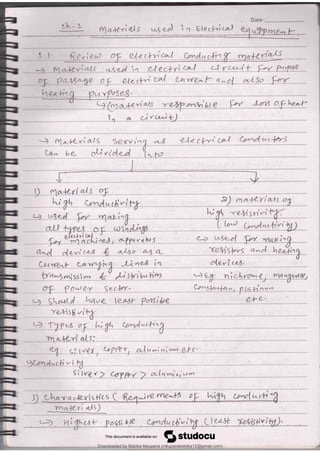 Date:
ch-1 Materials used in Electrical equipment
1.1. Review of electrical Conducting materials
→ Materials used in electrical circuit for purpose
of passage of electrical current and also for
heating purposes.
↳ (materials responsible for loss of heat
in a circuit)
→ Materials serving as electrical conductors
can be divided into
1) materials of
high conductivity
↳ used for making
all types of windings
electrical
for machines, apparatus
and devices & also as a
current carrying lines in
transmission & distribution
of power sector.
↳ Should have least possible
resistivity
↳ Types of high conducting
materials:
eg: silver, copper, aluminium etc.
↳ conductivity
silver > copper > aluminium
2) materials of
high resistivity.
(low conductivity)
↳ used for making
resistors and heating
devices.
↳ eg: nichrome, manganese,
Constantan, platinum
etc.
1) Characteristics (Requirements of high conducting
materials)
↳ Highest possible conductivity (least resistivity).
This document is available on
studocu
Downloaded by Baloba Neupane